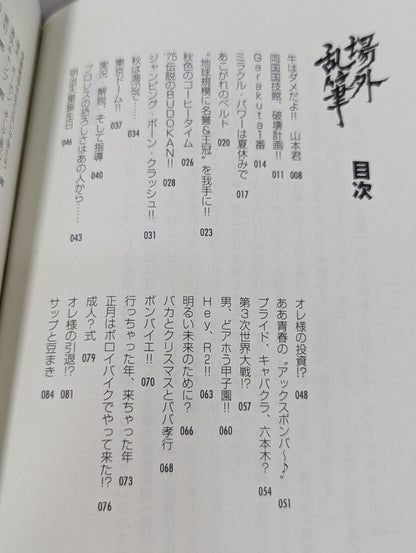 場外乱筆
目次
牛はダメだよ!! 山本君 008
両国国技館、破壊計画!! 011
Garakuta1番 014
ミラクル・パワーは夏休みで 017
あこがれのベルト 020
"地球規模に名誉&王冠"を我手に!! 023
秋色のコーヒータイム 026
'75伝説のBUDOKAN!! 028
ジャンピング・ボーン・クラッシュ!! 031
秋は海辺で…… 034
東京ドーム!! 037
実況、解説、そして指導 040
プロレスの恐ろしさはあの人から…… 043
046
オレ様の投資!? 048
ああ青春の"アックスボンバ〜♪" 051
プライド、キャバクラ、六本木? 054
第3次世界大戦!? 057
男、どアホウ甲子園!! 060
Hey、R2!! 063
明るい未来のために? 066
バカとクリスマスとババ孝行 068
ボンバイエ!! 070
行っちゃった年、来ちゃった年 073
正月はボロイバイクでやって来た!? 076
成人?式 079
オレ様の引退!? 081
サップと豆まき 084